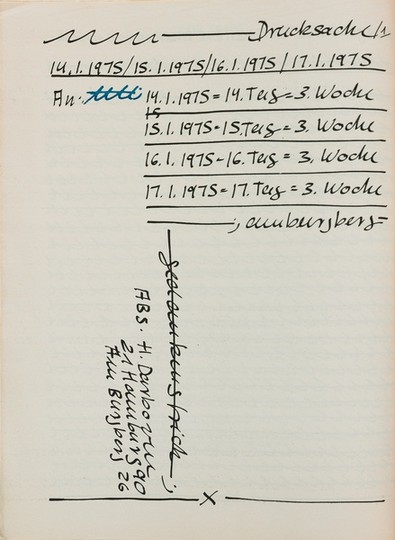 Drucksache/1
14.1.1975/15.1.1975/16.1.1975/17.1.1975
An:
14.1.1975=14.Tag=3.Woche
15
15.1.1975=15.Tag=3.Woche
16.1.1975=16.Tag=3.Woche
17.1.1975=17.Tag=3.Woche
; amburgberg=
gedankenstrich;
ABS. H. Darboven
21 Hamburg 90
Am Burgberg 26
X